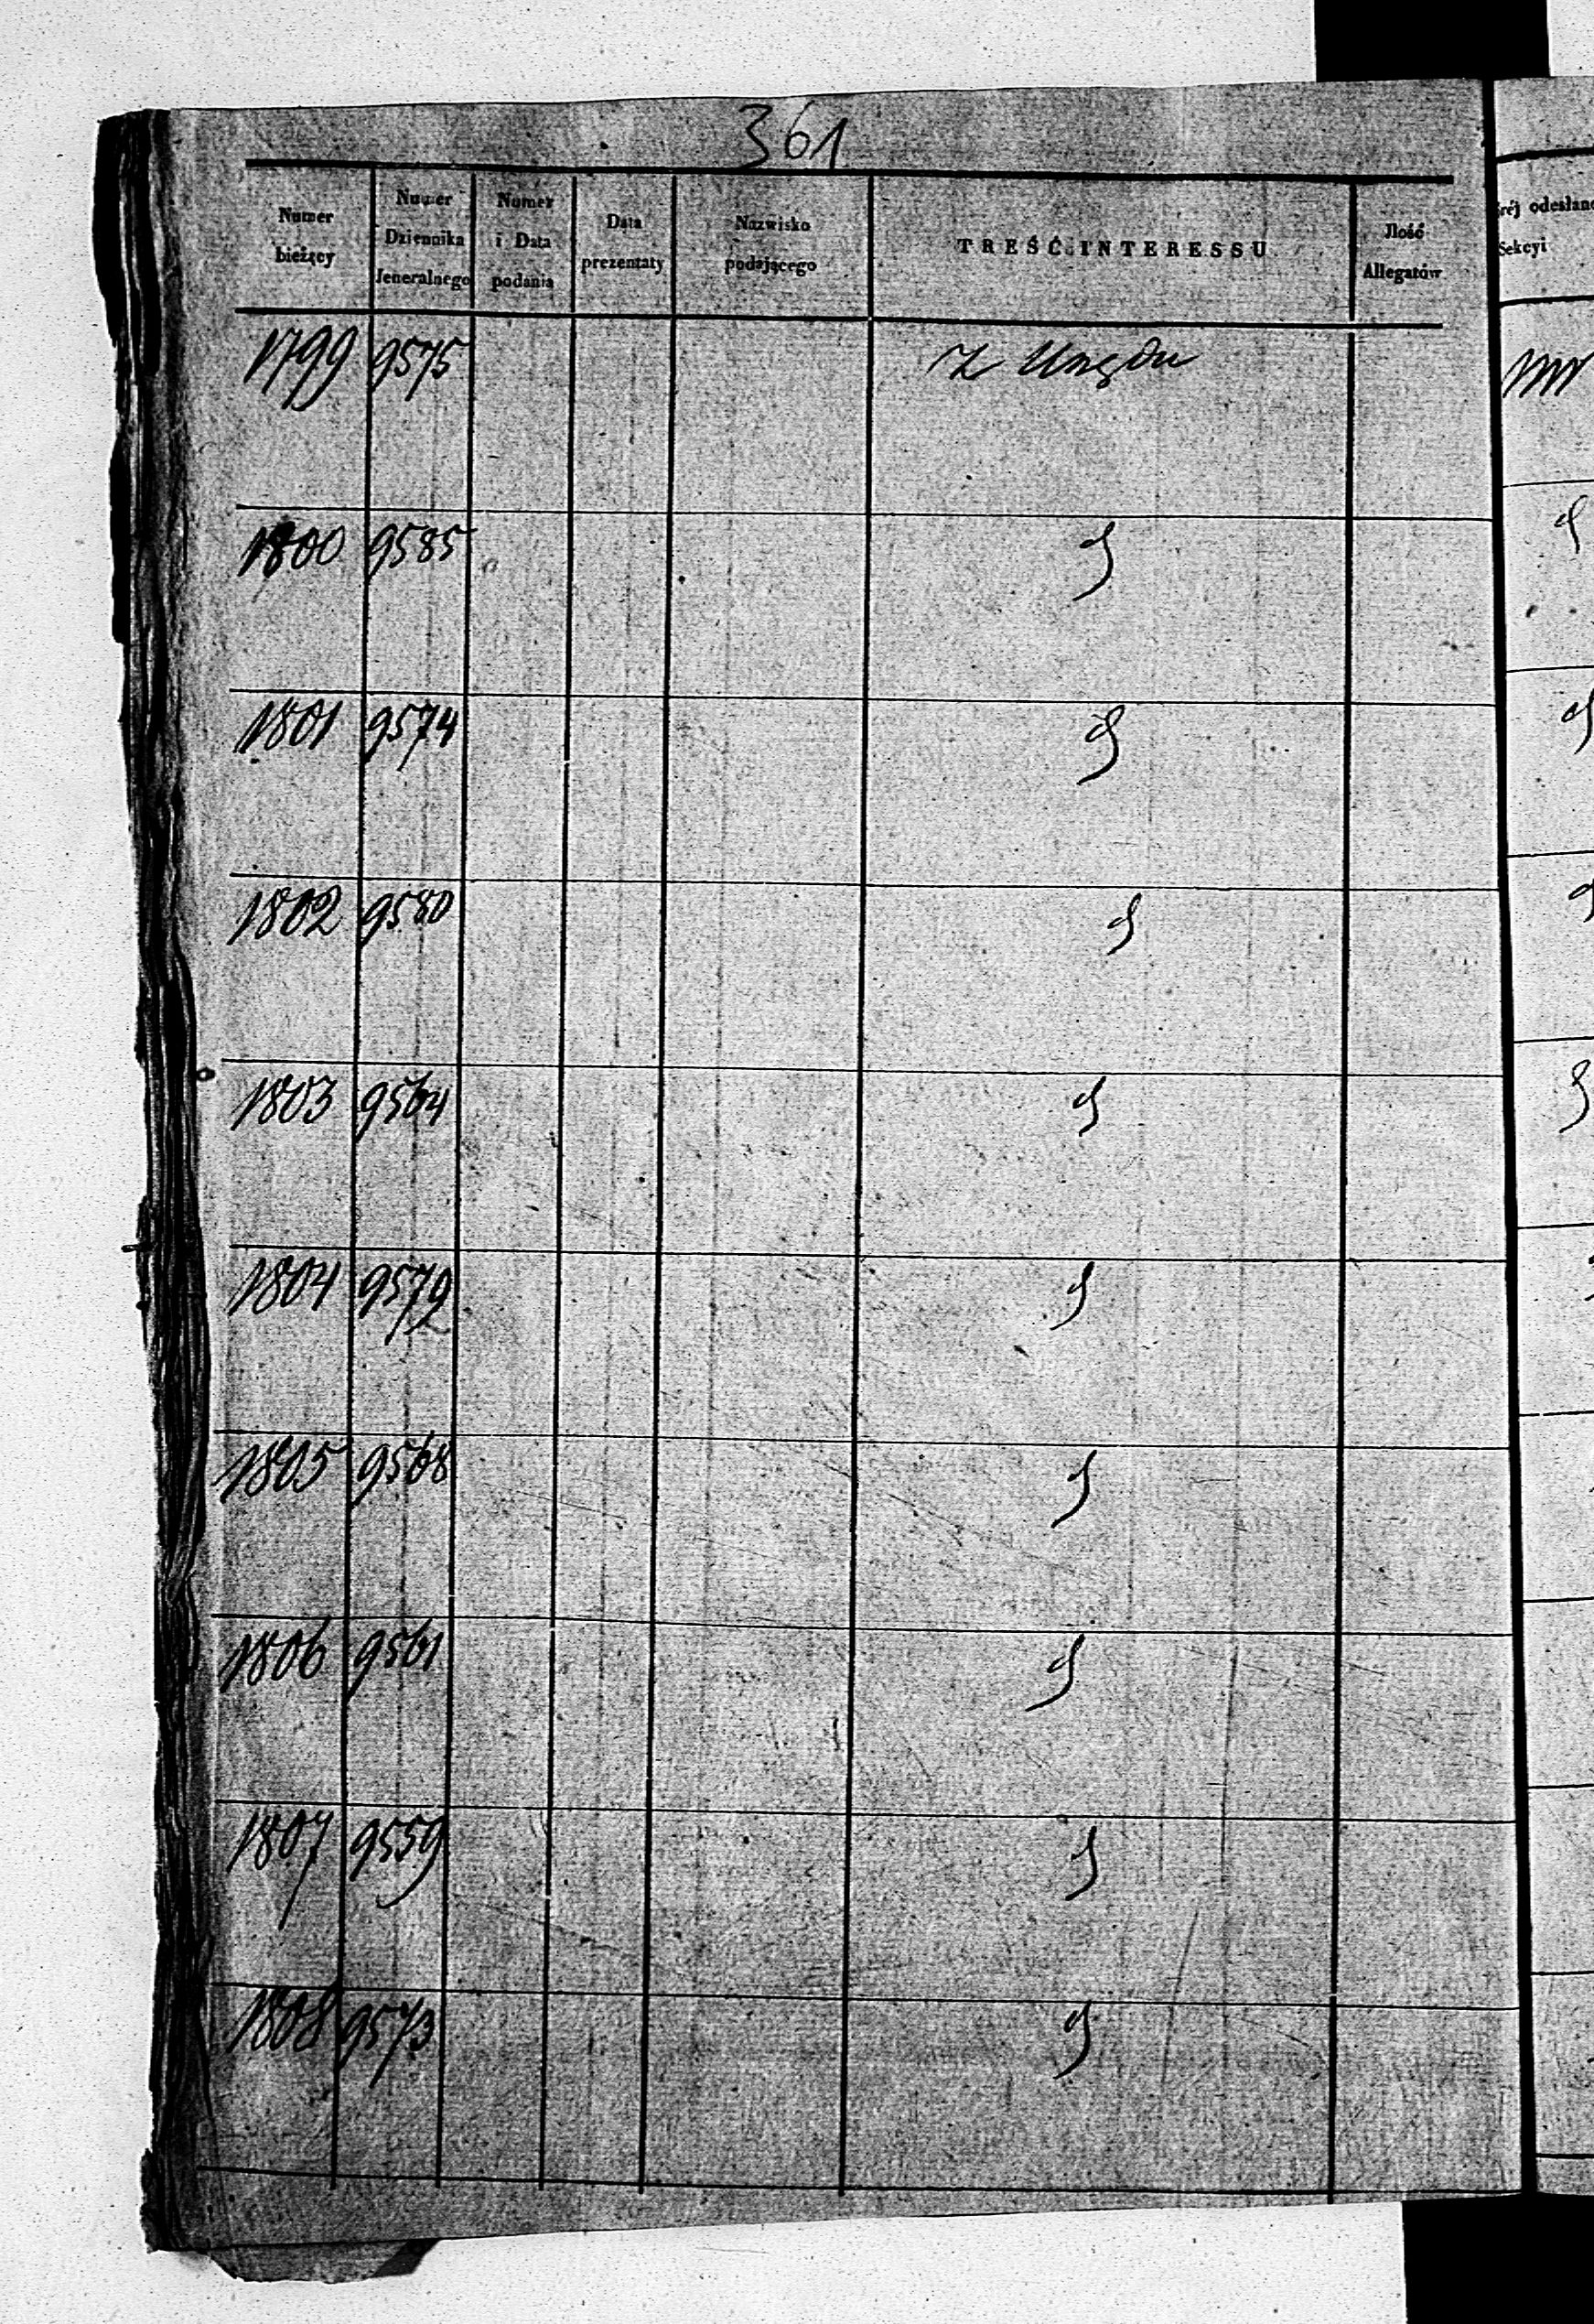 361
Numer bieżący Numer Dziennika Jeneralnego Numer i Data podania Data prezentaty Nazwisko podającego TREŚĆ INTERESSU Jlość Allegatów
1799 9575 Z Urzędu
1800 9585
1801 9574
1802 9580
1803 9564
1804 9572
1805 9568
1806 9561
1807 9559
1808 9573
odesłano
Sekcyi